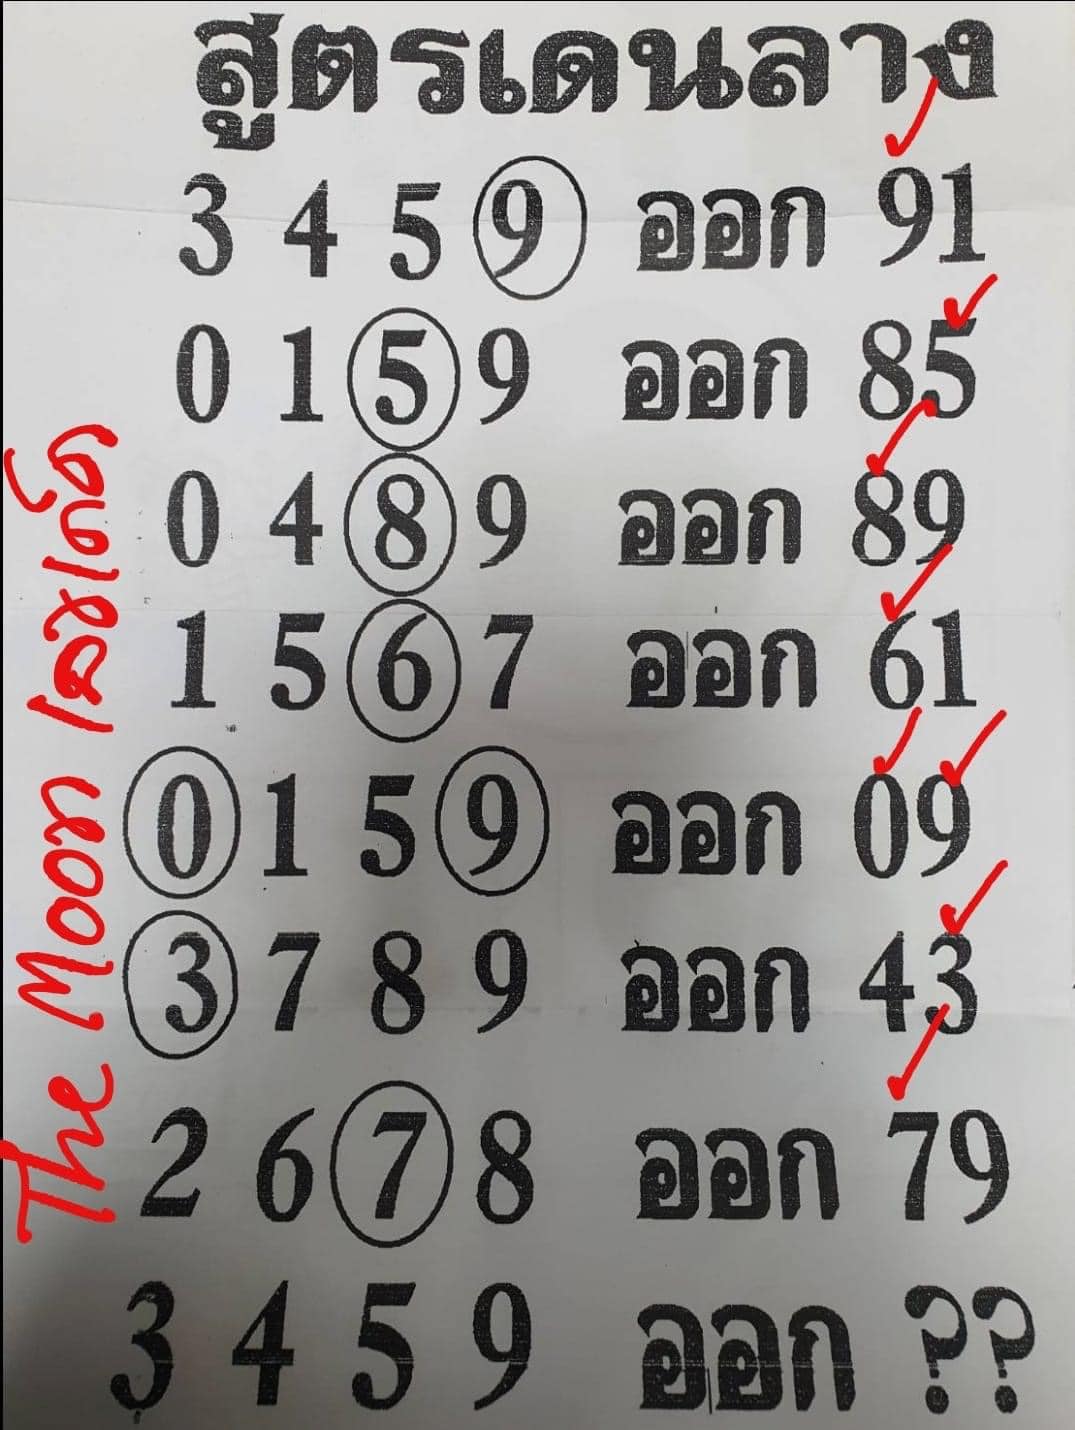 สูตรเด่นลาง
3 4 5 9 ออก 91
0 1 5 9 ออก 85
0 4 8 9 ออก 89
1 5 6 7 ออก 61
0 1 5 9 ออก 09
3 7 8 9 ออก 43
2 6 7 8 ออก 79
3 4 5 9 ออก ??
The Moon เลขเก็ด